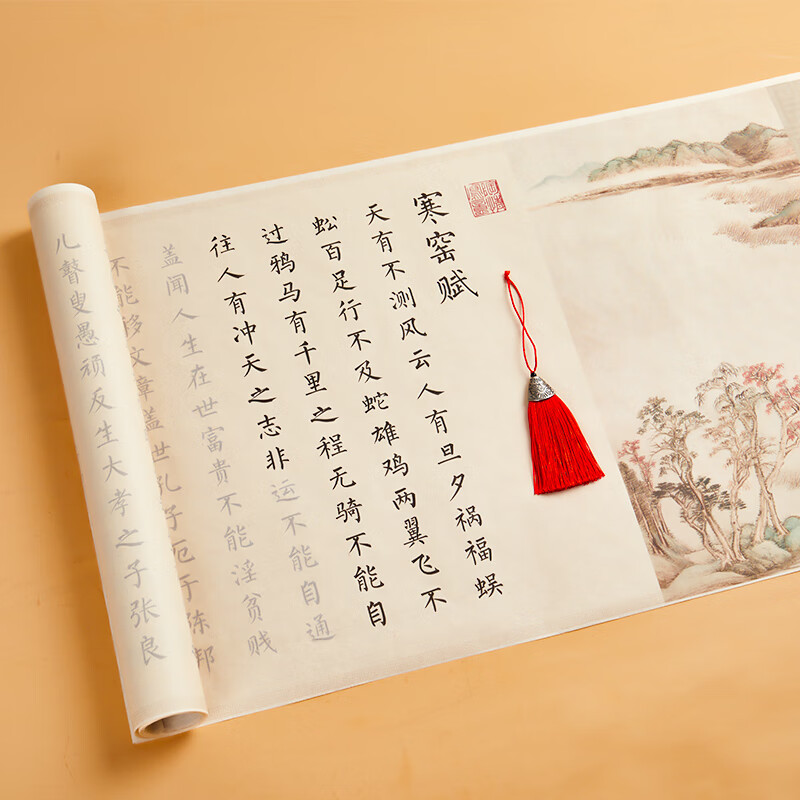 寒窑赋
天有不测风云人有旦夕祸福蜈
蚣百足行不及蛇雄鸡两翼飞不
过鸦马有千里之程无骑不能自
往人有冲天之志非运不能自通
盖闻人生在世富贵不能淫贫贱
不能移文章盖世孔子厄于陈邦
儿瞽叟愚顽反生大孝之子张良